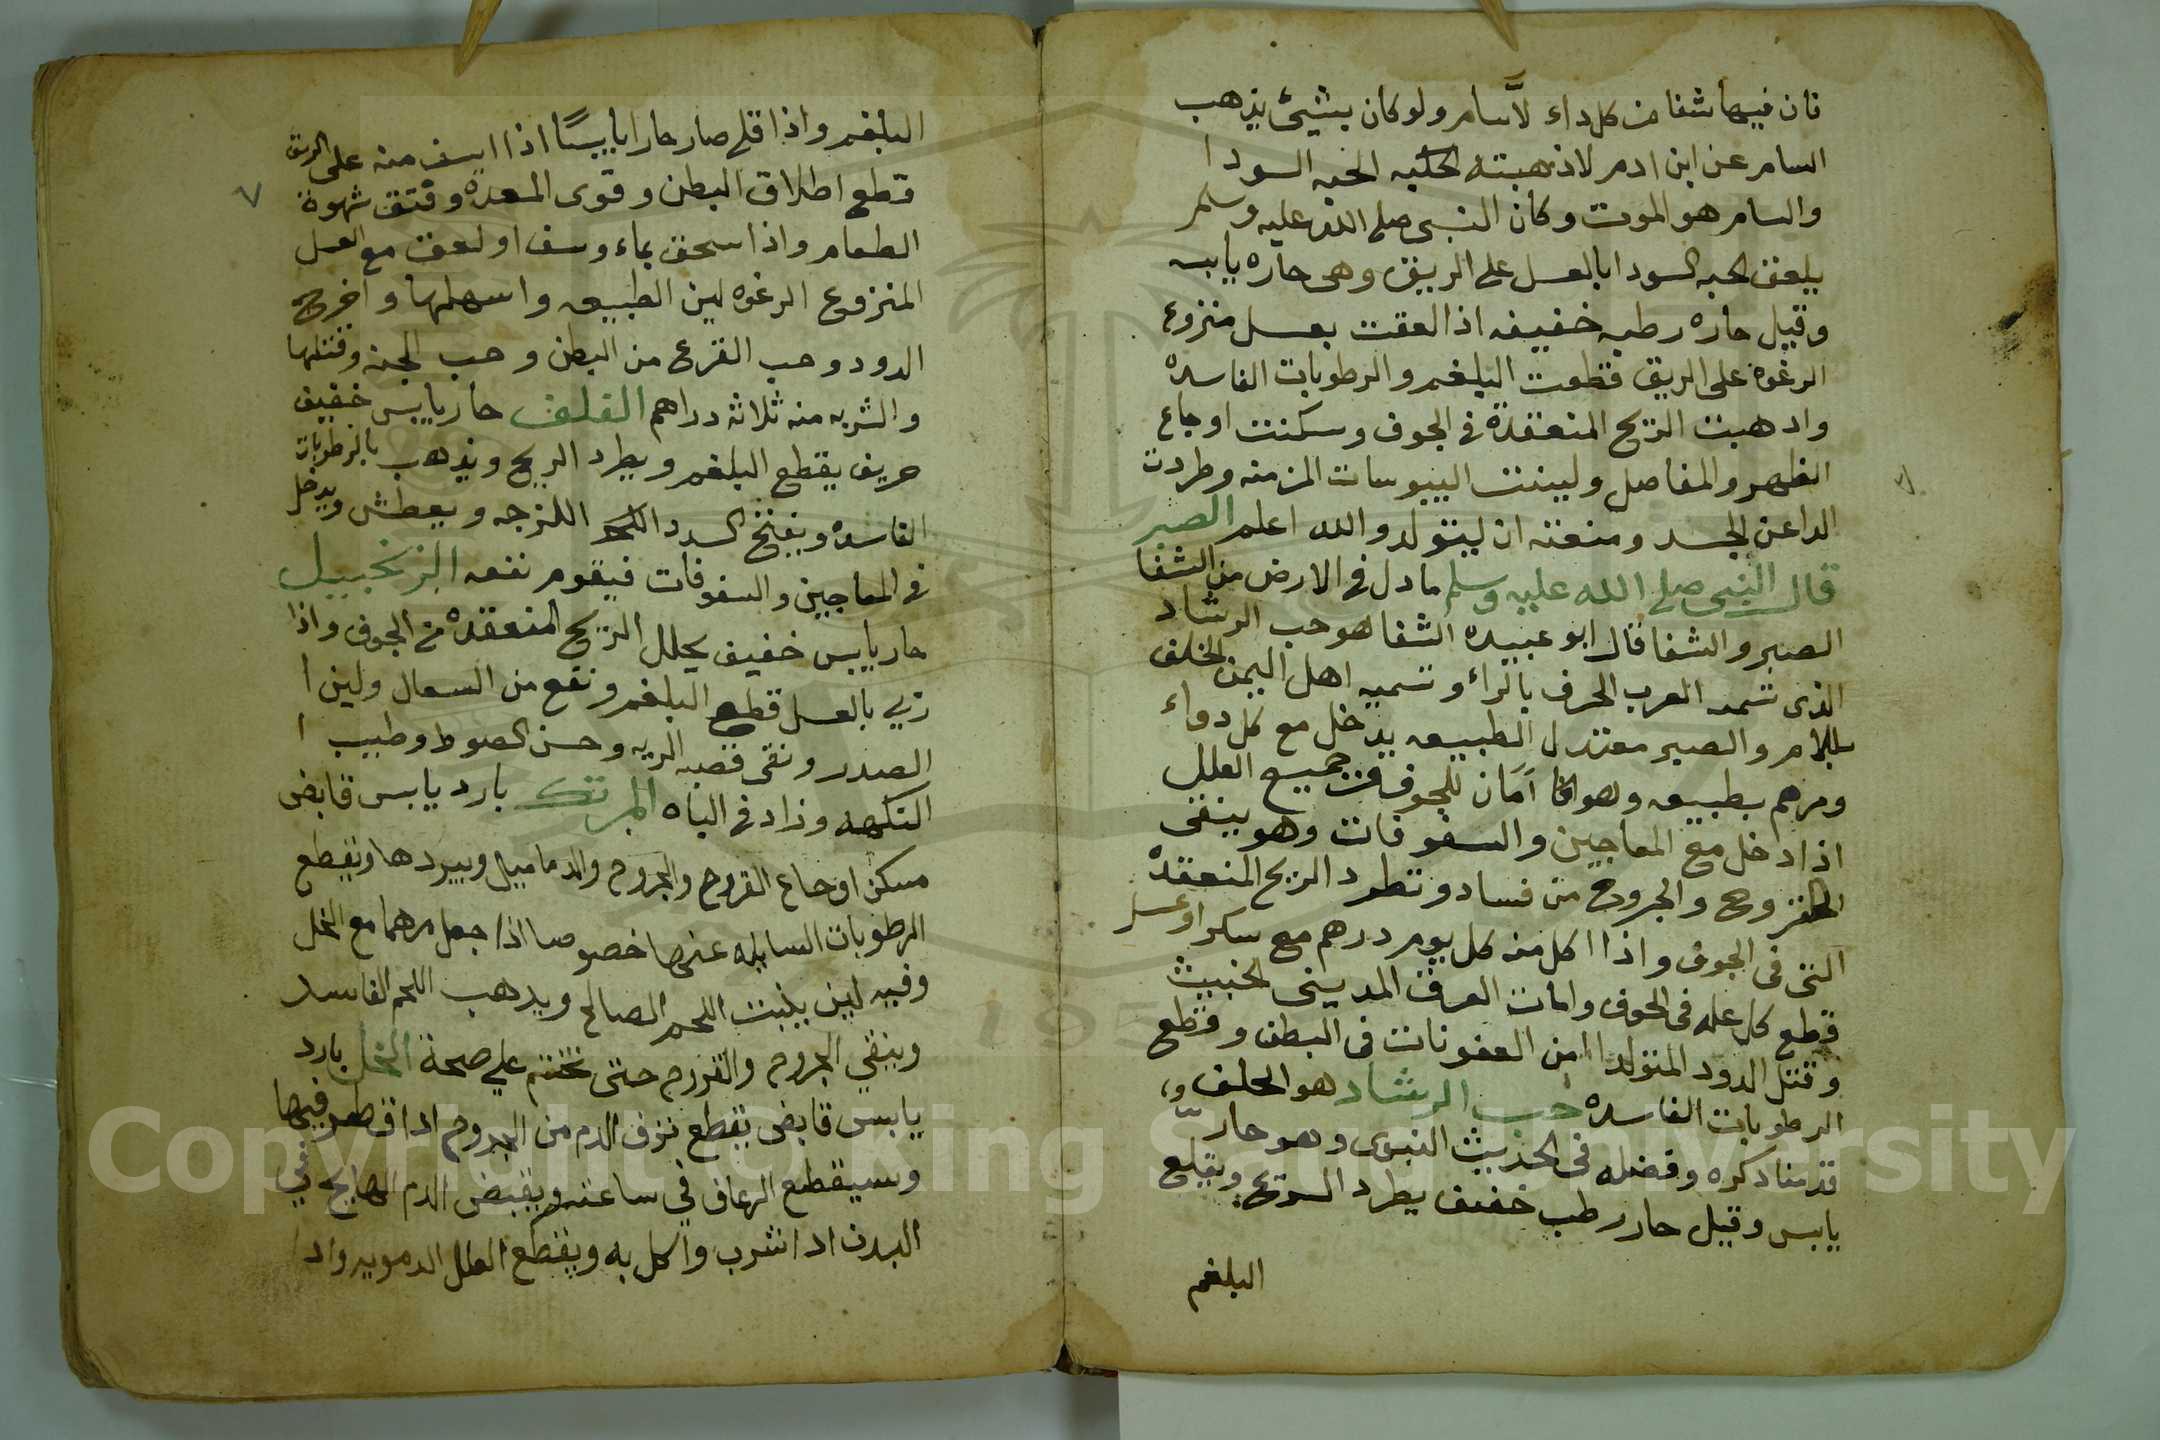 فان فيها شفا من كل داء لاسام ولو كان بشيئ يذهب
السام عن ابن ادم لاذهبته الحبه السودا
والسام هو الموت وكان النبي صلي الله عليه وسلم
يلعق لحبه السودا بالعسل على الريق وهي حاره يابسه
وقيل حاره رطبه خفيفه اذا لعقت بعسل منزوع
الرغوة على الريق قطعت البلغم والرطوبات الفاسده
واذهبت الريح المنعقدة في الجوف وسكنت اوجاع
الظهر والمفاصل ولينت اليبوسات المزمنه وطردت
الدا عن الجسد ومنعته ان يتولد والله اعلم الصبر
قال النبي صلي الله عليه وسلم ما دل في الارض من الشفا
الصبر والشفا قال ابو عبيده الشفا هو حب الرشاد
الذى تسمه العرب الحرف بالراء وتسميه اهل اليمن الحلف
باللام والصبر معتدل الطبيعه يدخل مع كل دواء
ومرهم بطبيعه وهو امان للجوف من جميع العلل
اذا دخل مع المعاجين والسفوفات وهو ينقى
القروح والجروح من فساد وتطرد الريح المنعقدة
التى فى الجوف واذا اكل منه كل يوم درهم مع سكر او عسل
قطع كل عله فى الجوف وامات العرق المدينى الخبيث
وقتل الدود المتولدا من العفونات فى البطن وقطع
الرطوبات الفاسده حب الرشاد هو الحلف و
قدمنا ذكره وفضله فى الحديث النبوى وهو حار
يابس وقيل حار رطب خفيف يطرد الريح ويقلع
البلغم
البلغم واذا قلى صار حارا يابسًا اذا اسف منه على الريق
٧
قطع اطلاق البطن وقوى المعده وفتق شهوة
الطعام واذا سحق بماء وسف او لعق مع العسل
المنزوع الرغوه لين الطبيعه واسهلها واخرج
الدود وحب القرع من البطن وحب الجنه وقتلها
والشربه منه ثلاثة دراهم الفلفل حار يابس خفيف
حريف يقطع البلغم ويطرد الريح ويذهب بالرطوبات
الفاسده ويفتح السدد اللزجه ويعطش ويدخل
في المعاجين والسفوفات فيقوم نفعه الزنجبيل
حار يابس خفيف يحلل الريح المنعقده في الجوف واذا
ربي بالعسل قطع البلغم ونفع من السعال ولين ا
الصدر ونقى قصبه الريه وحسن الصوط وطيب ا
النكهه وزاد في الباه المرتك بارد يابس قابض
مسكن اوجاع القروح والجروح والدماميل ويبردها ويقطع
الرطوبات السايله عنها خصوصا اذا جعل مرهما مع الخل
وفيه لين ينبت اللحم الصالح ويذهب اللحم الفاسد
وينقي الجروح والقروح حتى تختم علي صحة الخل بارد
يابس قابض يقطع نزف الدم من الجروح اذا قطر فيها
وسيقطع الرعاف في ساعته ويقبض الدم الهايج في
البدن اذا شرب واكل به ويقطع العلل الدمويه واذا
Copyright © King Saud University